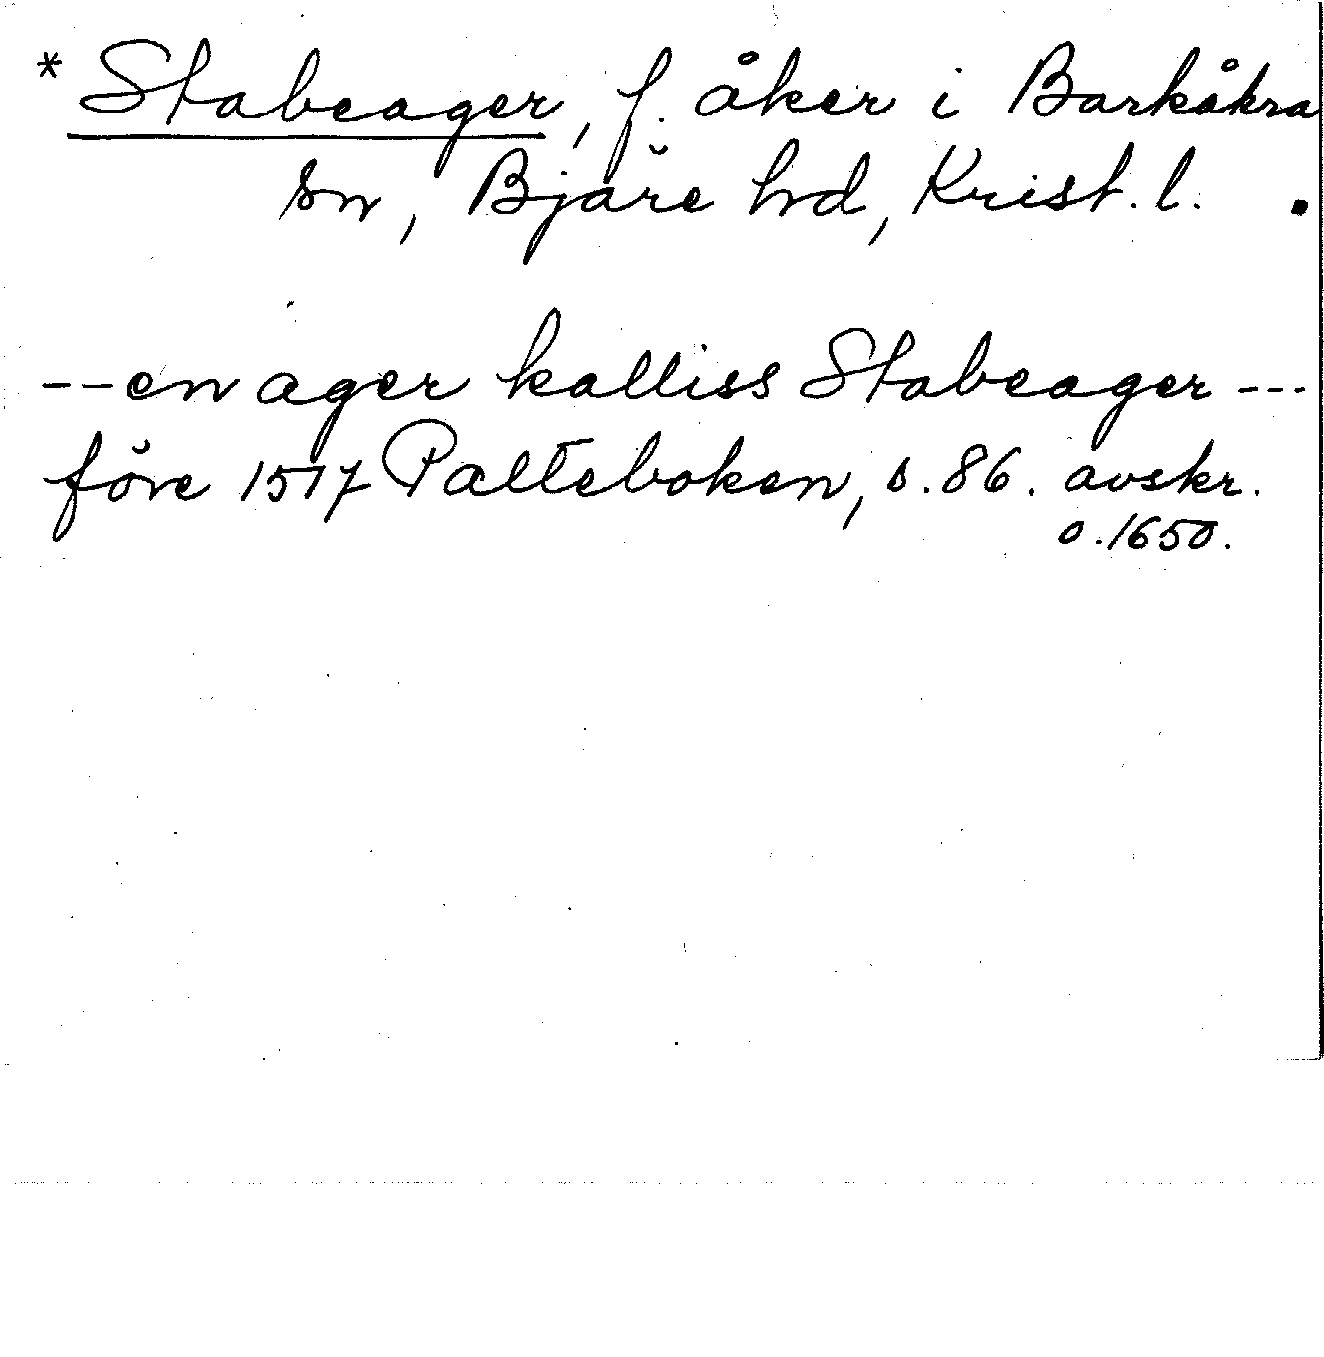 * Stabeager, f. åker i Barkåkra
sn, Bjäre hd, Krist. l.
-- en ager kalliss Stabeager ---
före 1517 Palteboken, s. 86. avskr.
o. 1650.